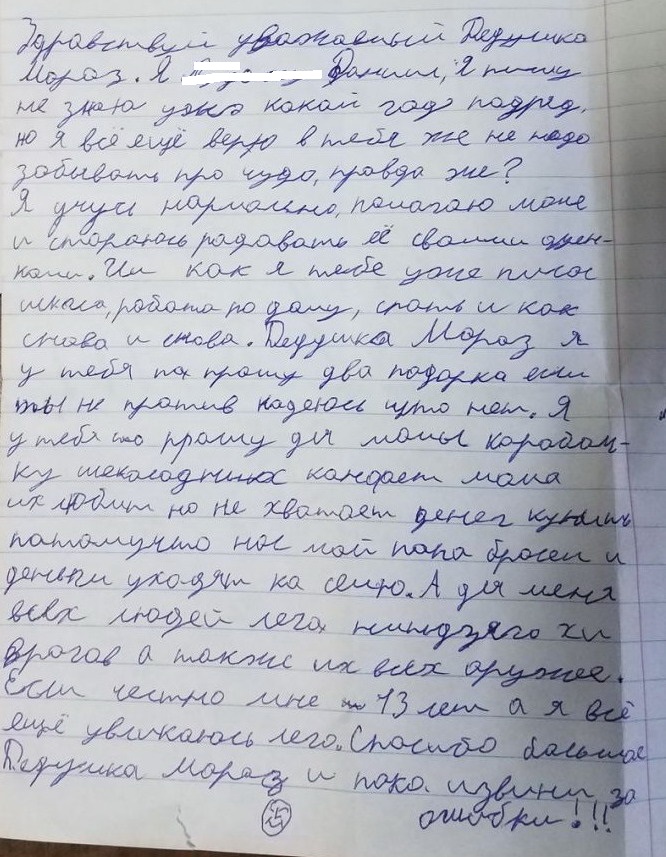 Здравствуй уважаемый Дедушка
Мороз. Я Даниил, Я пишу
не знаю уже какой год подряд,
но я всё ещё верю в тебя же не надо
забывать про чудо, правда же?
Я учусь нармально, помагаю маме
и стараюсь радавать её своими оцен-
ками. Ии как я тебе уже писал
школа, работа по дому, спать и как
снова и снова. Дедушка Мороз я
у тебя па прашу два подарка если
ты не против надеюсь что нет. Я
у тебя по прашу для мамы карабом-
ку шеколадных канфет мама
их любит но не хватает денег купить
патамучто нас мой папа бросил и
деньги уходят на семю. А для меня
всех людей лего ниндзяго их
врагов а также их всех аружее.
Если честно мне 13 лет а я всё
ещё увликаюсь лего. Спасибо большое
Дедушка Мороз и пока извини за
ошибки!!!